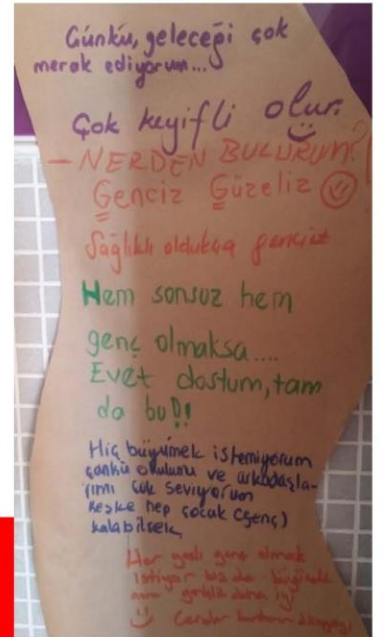 Çünkü, geleceği çok
merak ediyorum...
Çok keyifli olur.
- NERDEN BULURUM?
Genciz Güzeliz
Sağlıklı oldukça genciz
Hem sonsuz hem
genç olmaksa....
Evet dostum, tam
da bu!
Hiç büyümek istemiyorum
çünkü okulumu ve arkadaşla-
rımı çok seviyorum
keşke hep çocuk (genç)
kalabilsek
Her yaşlı genç olmak
istiyor biz de büyümek
daha iyi